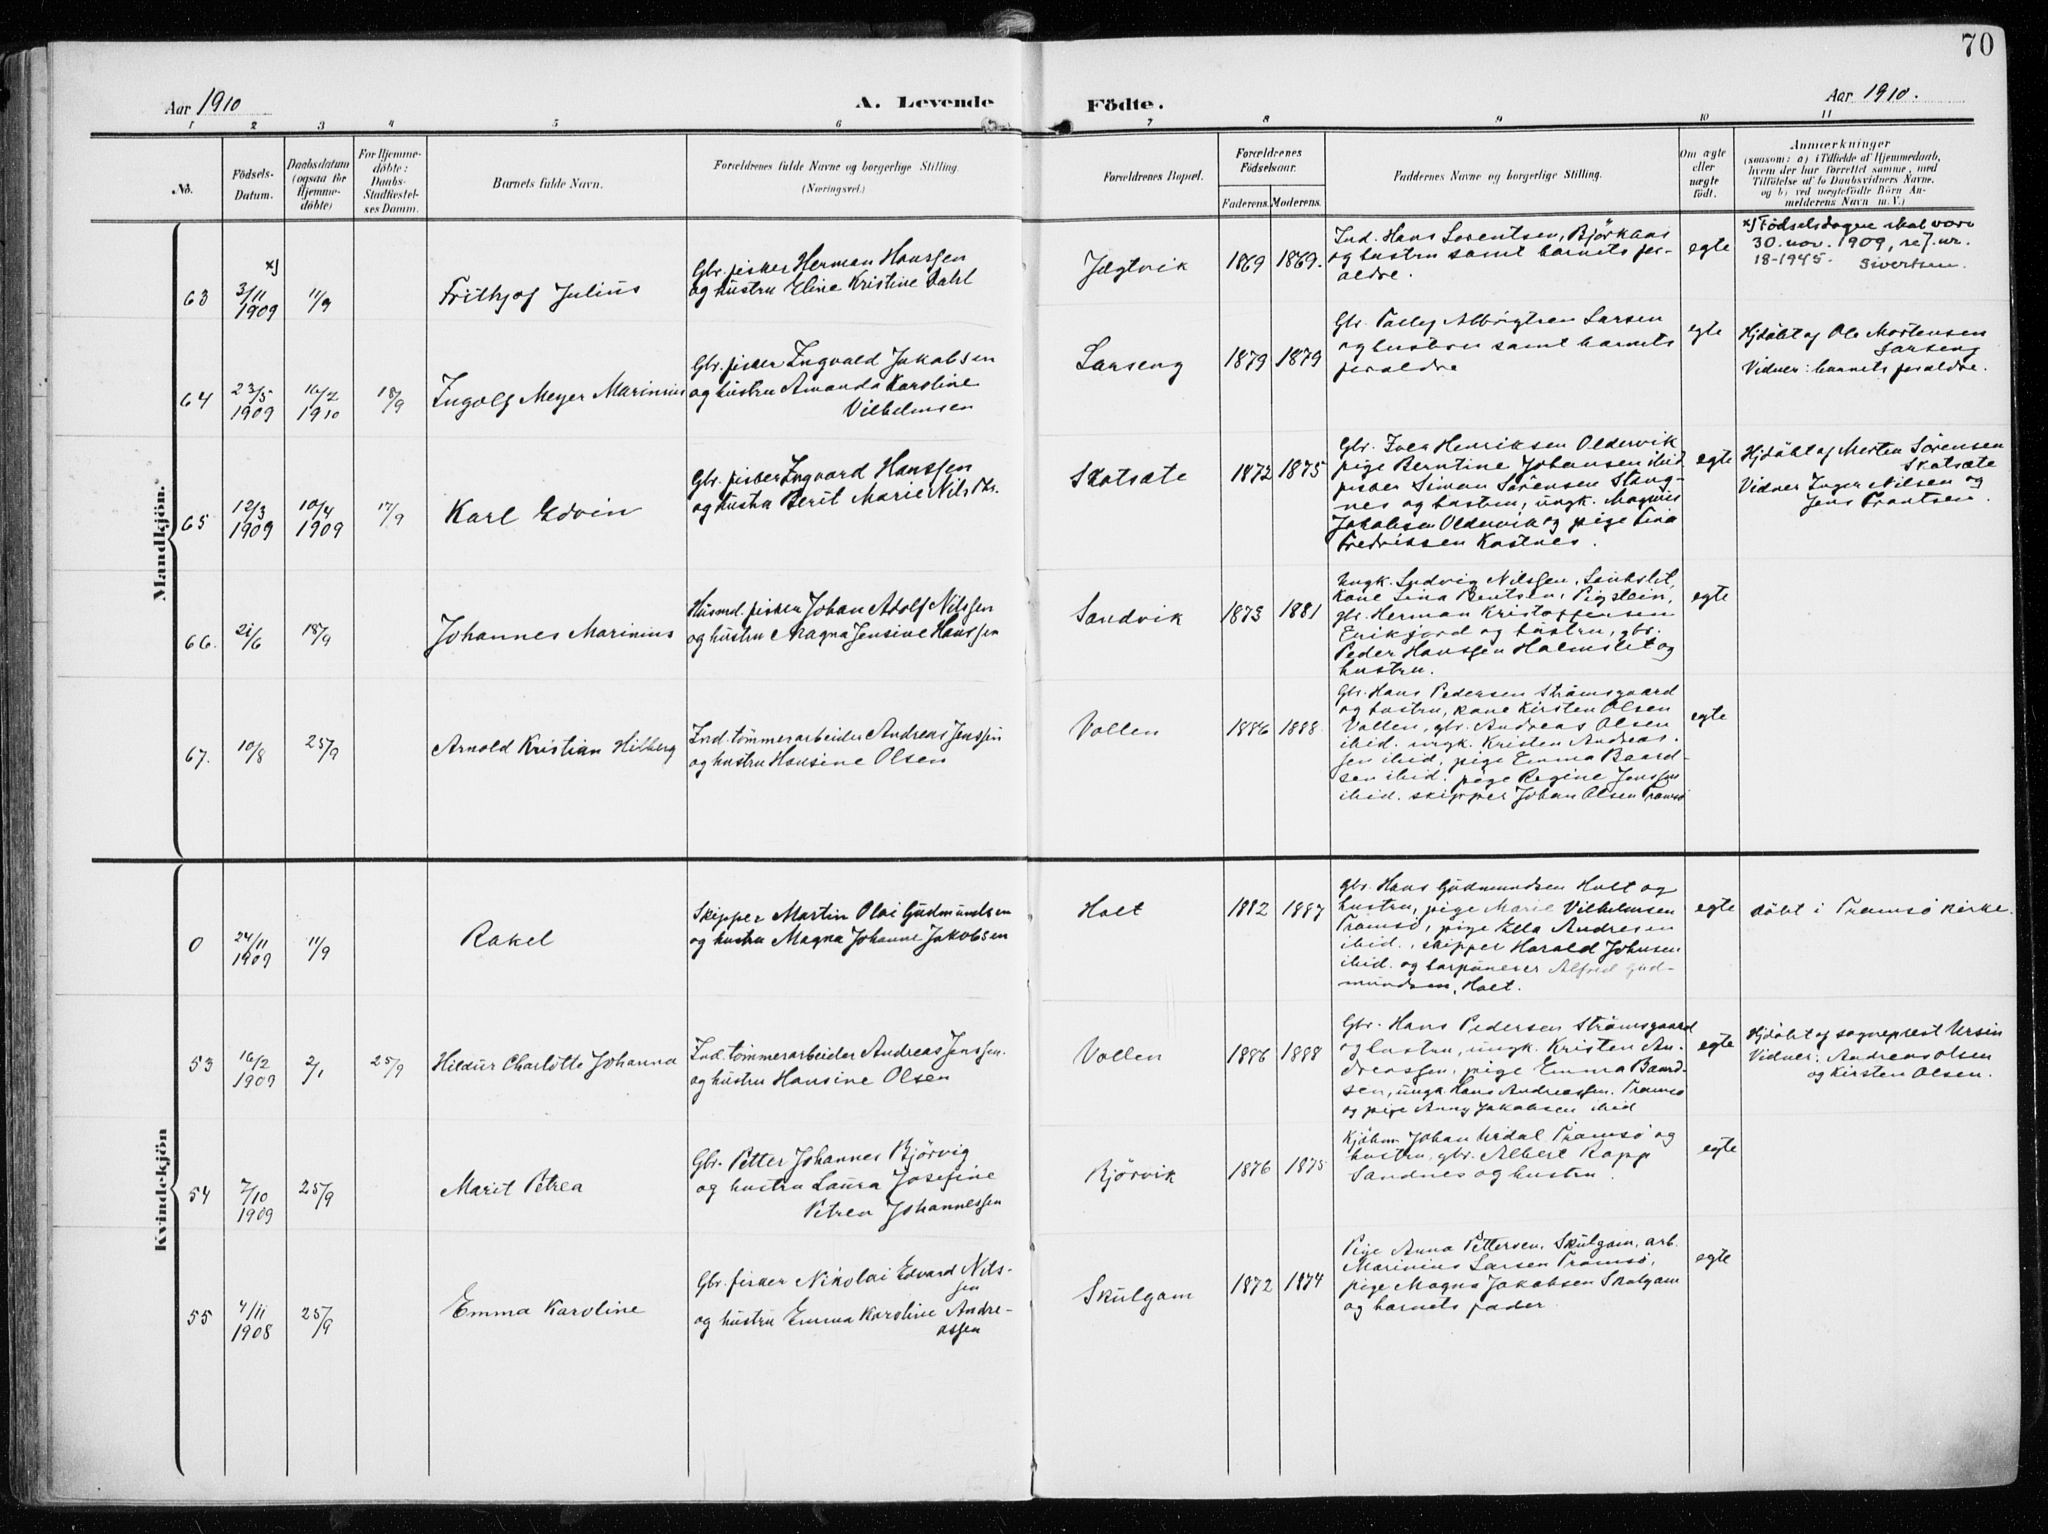 70
Aar 1910
A. Levende
Födte.
Aar 1910.
1 2 3 4 5 6 7 8 9 10 11
No.
Födsels-
Datum.
Daabsdatum
(ogsaa for
Hjemme-
döbte)
For Hjemme-
döbte:
Daabs-
Stadfæstel-
ses Datum.
Barnets fulde Navn.
Forældrenes fulde Navne og borgerlige Stilling.
(Næringsvei.)
Forældrenes Bopæl.
Forældrenes
Födselsaar.
Faderens. Moderens.
Faddernes Navne og borgerlige Stilling.
Om ægte
eller
uægte
født.
Anmærkninger
(saasom: a) i Tilfælde af Hjemmedaab,
hvem der har forrettet samme, med
Tilföielse af to Daabsvidners Navne,
og b) ved uægtefödte Börn An-
melderens Navn m. V.)
Mandkjön.
63
x)
3/11
1909
11/9
Frithjof Julius
Gbr. fisker Herman Hanssen
og hustru Eline Kristine Dahl
Jægtvik
1869 1869.
Ind. Hans Lorentsen, Bjørkaas
og hustru samt barnets for-
ældre.
egte
x) Fødselsdagen skal være
30. nov. 1909, se J. nr.
18-1945. Sivertsen.
64
23/5
1909
16/2
1910
18/9
Ingolf Meyer Marinius
Gbr. fisker Ingvald Jakobsen
og hustru Amanda Karoline
Vilhelmsen
Larseng
1879 1879
Gbr. Albrigtsen Larsen
og hustru samt barnets
forældre
egte
Hjdøbt af Ole Mortensen
Larseng
Vidner: barnets forældre.
65
12/3
1909
10/4
1909
17/9
Karl Edvin
Gbr. fisker Ingvard Hanssen
og hustru Berit Marie Nilsdtr.
Skatsæte
1872 1875
Gbr. Iver Henriksen Oldervik
pige Berntine Johansen ibid
fisker Simon Sørensen Stang-
nes og hustru, ungk. Magnus
Jakobsen Oldervik og pige Tina
Fredriksen Kastnes.
egte
Hjdøbt af Morten Sørensen
Skatsæte
Vidner Inger Nilsen og
Jens Frantsen.
66.
21/6
18/9
Johannes Marinius
Husmd. fisker Johan Adolf Nilssen
og hustru Magna Jensine Hanssen
Sandvik
1873 1881
Ungk. Ludvig Nilssen,
kone Lina Bentsen,
gbr. Herman Kristoffersen
Erikfjord og hustru, gbr.
Peder Hanssen Holmslet og
hustru.
egte
67.
10/8
25/9
Arnold Kristian Hilberg
Ind. tømmerarbeider Andreas Jenssen
og hustru Hansine Olsen
Vollen
1886 1888.
Gbr. Hans Pedersen Strømsgaard
og hustru, kone Kirsten Olsen
Vollen, gbr. Andreas Olsen
ibid. ungk. Kristen Andreas-
sen ibid, pige Emma Baard-
sen ibid. pige Regine Jenssen
ibid. skipper Johan Olsen Tromsø
egte
Kvindekjön
0
24/11
1909
11/9
Rakel
Skipper Martin Olai Gudmundsen
og hustru Magna Johanne Jakobsen
Holt
1882 1887
Gbr. Hans Gudmundsen Holt og
hustru, pige Marie Vilhelmsen
Tromsø, pige Ella Andresen
ibid., skipper Harald Johnsen
ibid. og harpunerer Alfred Gud-
mundsen, Holt.
egte
døbt i Tromsø kirke.
53
16/2
1909
2/1
25/9
Hildur Charlotte Johanna
Ind. tømmerarbeider Andreas Jenssen.
og hustru Hansine Olsen
Vollen
1886 1888
Gbr. Hans Pedersen Strømsgaard
og hustru, ungk. Kristen An-
dreassen, pige Emma Baard-
sen, ungk Hans Andreassen, Tromsø
og pige Anny Jakobsen ibid
egte
Hjdøbt af sogneprest Ursin
Vidner: Andreas Olsen
og Kirsten Olsen.
54
7/10
1909
25/9
Marit Petrea
Gbr. Petter Johannes Bjørvig
og hustru Laura Josefine
Petrea Johannessen
Bjørvik
1876 1875
Kjøbm Johan Urdal Tromsø og
hustru, gbr. Albert Kopp
Sandnes og hustru
egte
55
4/11
1908
25/9
Emma Karoline
Gbr. fisker Nikolai Edvard Nils-
sen
og hustru Emma Karoline Andre-
assen
Skulgam
1872 1874
Pige Anna Pettersen, Skulgam, arb.
Marinius Larsen Tromsø,
pige Magna Jakobsen Skulgam
og barnets fader.
egte